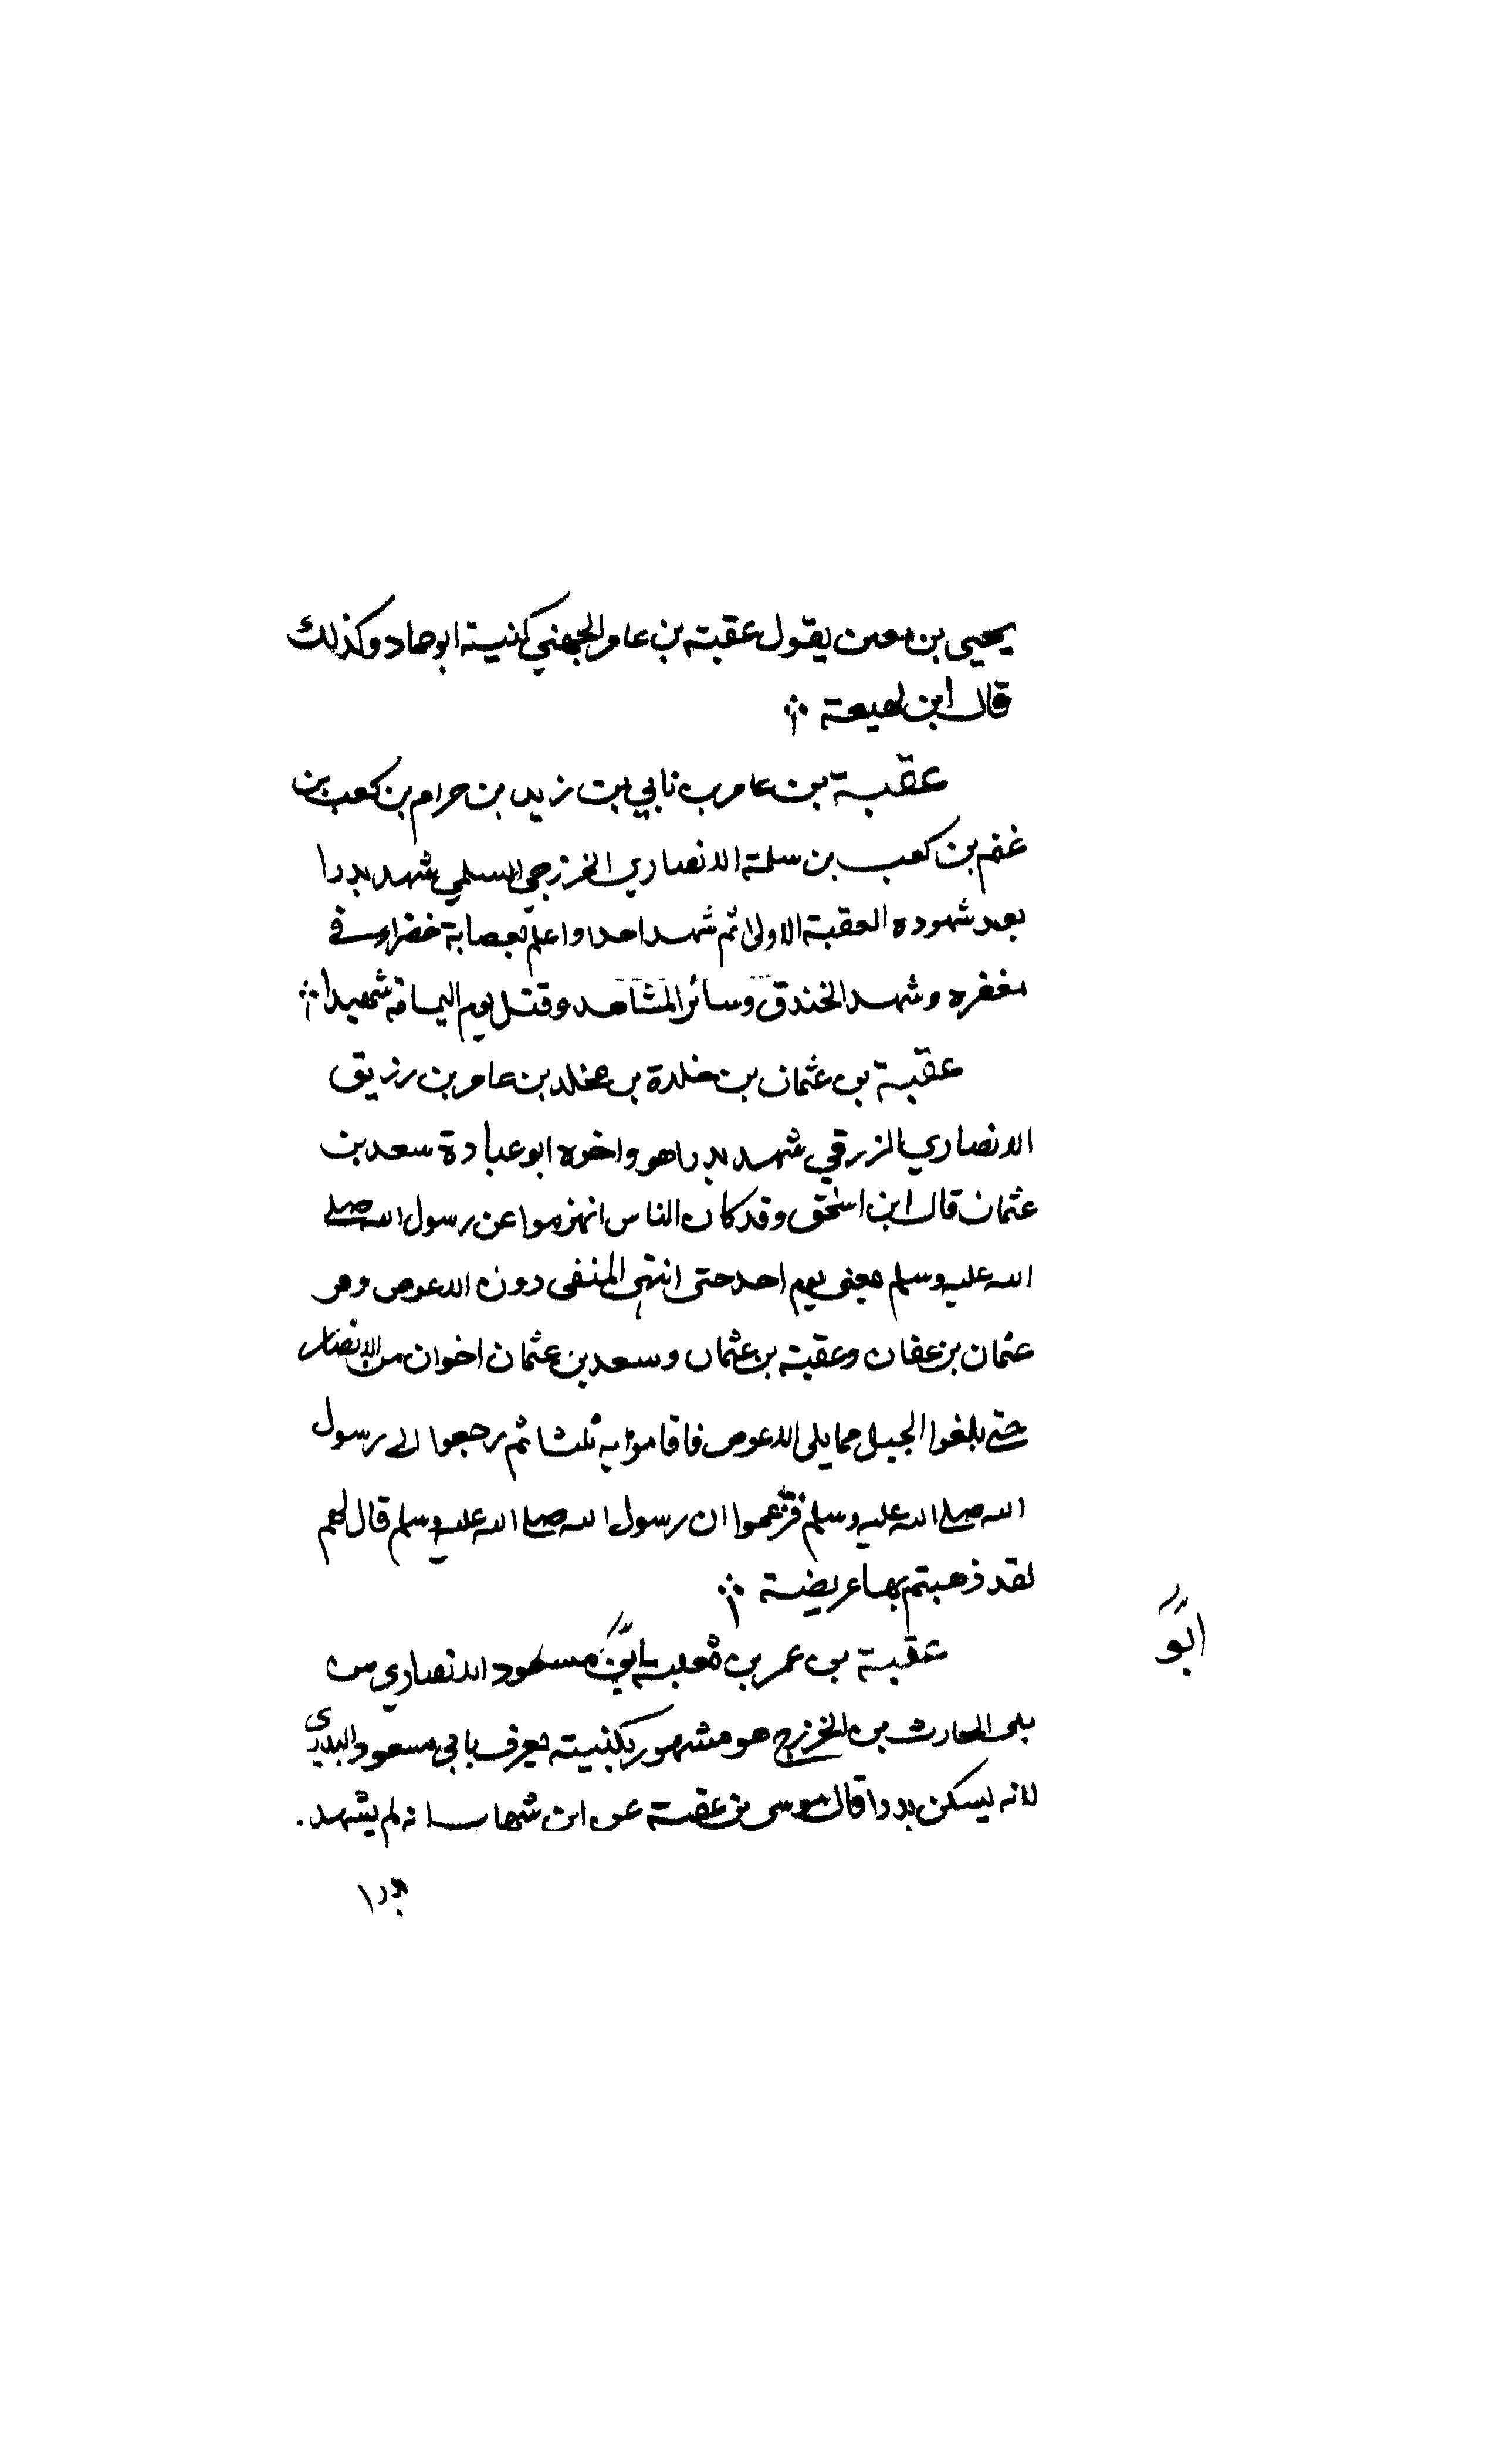 يحيى بن معين يقول عقبة بن عامر الجهني كنيته ابو حماد وكذلك
قال ابن لهيعة
عقبة بن عامر بن نابي بن زيد بن حرام بن كعب بن
غنم بن كعب بن سلمة الانصاري الخزرجي السلمي شهد بدرا
بعد شهوده العقبة الاولى ثم شهد احدا واعلم بعصابة خضراء في
مغفره وشهد الخندق وسائر المشاهد وقتل يوم اليمامة شهيدا
عقبة بن عثمان بن خلدة بن مخلد بن عامر بن رزيق
الانصاري الزرقي شهد بدرا هو واخوه ابو عبادة سعد بن
عثمان قال ابن اسحق وقد كان الناس انهزموا عن رسول الله صلى
الله عليه وسلم يعني يوم احد حتى انتهى المنفى دون الاعوص وهو
عثمان بن عفان وعقبة بن عثمان وسعد بن عثمان اخوان من الانصار
حتى بلغوا الجبل مما يلي الاعوص فاقاموا به ثلثا ثم رجعوا الى رسول
الله صلى الله عليه وسلم فزعموا ان رسول الله صلى الله عليه وسلم قال لهم
لقد ذهبتم بها عريضة
عقبة بن عمر بن ثعلبة ابو مسعود الانصاري من
ابو
بلى الحارث بن الخزرج هو مشهور بكنيته يعرف بابي مسعود البدري
لانه يسكن بدرا قال موسى بن عقبة عن ابن شهاب انه لم يشهد
بدرا